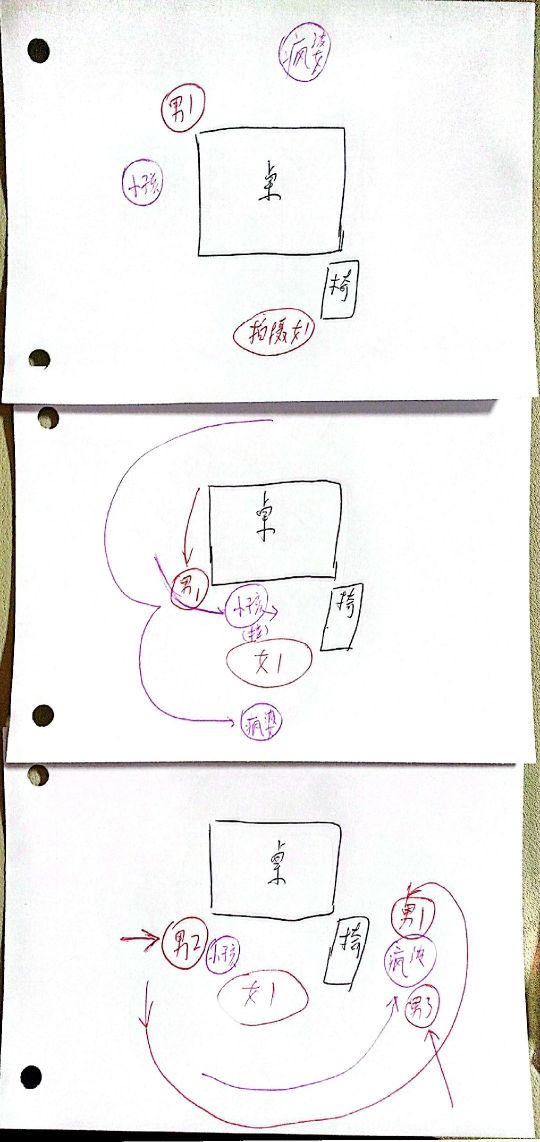 疯婆
男1
小孩
桌
椅
拍摄女1
桌
男1
小孩
(拉)
椅
女1
疯婆
桌
男2
小孩
椅
男1
疯婆
女1
男3